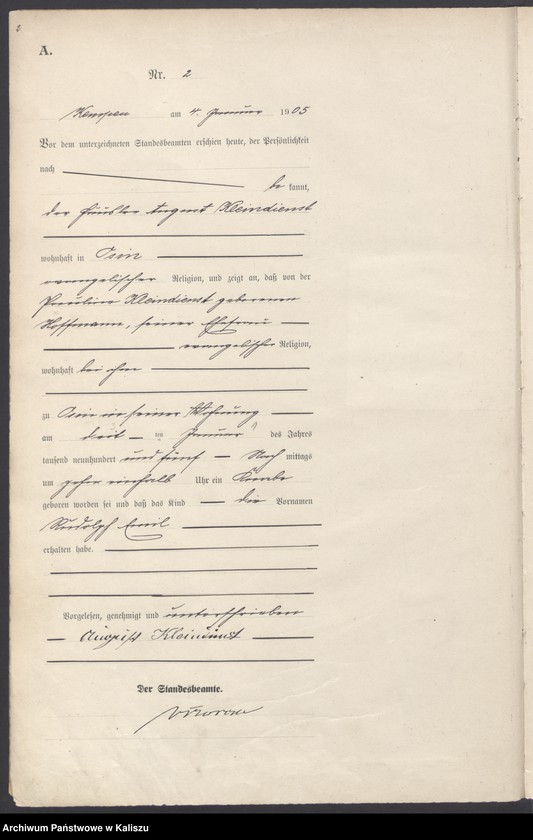 2
A.
Nr. 2
Kempen am 4. Januar 1905
Vor dem unterzeichneten Standesbeamten erschien heute, der Persönlichkeit
nach
be kannt,
der Häusler August Kleindienst
wohnhaft in Osin
evangelischer Religion, und zeigt an, daß von der
Pauline Kleindienst geborenen
Hoffmann, seiner Ehefrau
evangelischer Religion,
wohnhaft bei ihm
zu Osin in seiner Wohnung
am ten Januar des Jahres
tausend neunhundert und fünf Nach mittags
um einhalb Uhr ein Knabe
geboren worden sei und daß das Kind die Vornamen
Rudolph Emil
erhalten habe.
Vorgelesen, genehmigt und unterschrieben
August Kleindinst
Der Standesbeamte.
Archiwum Państwowe w Kaliszu